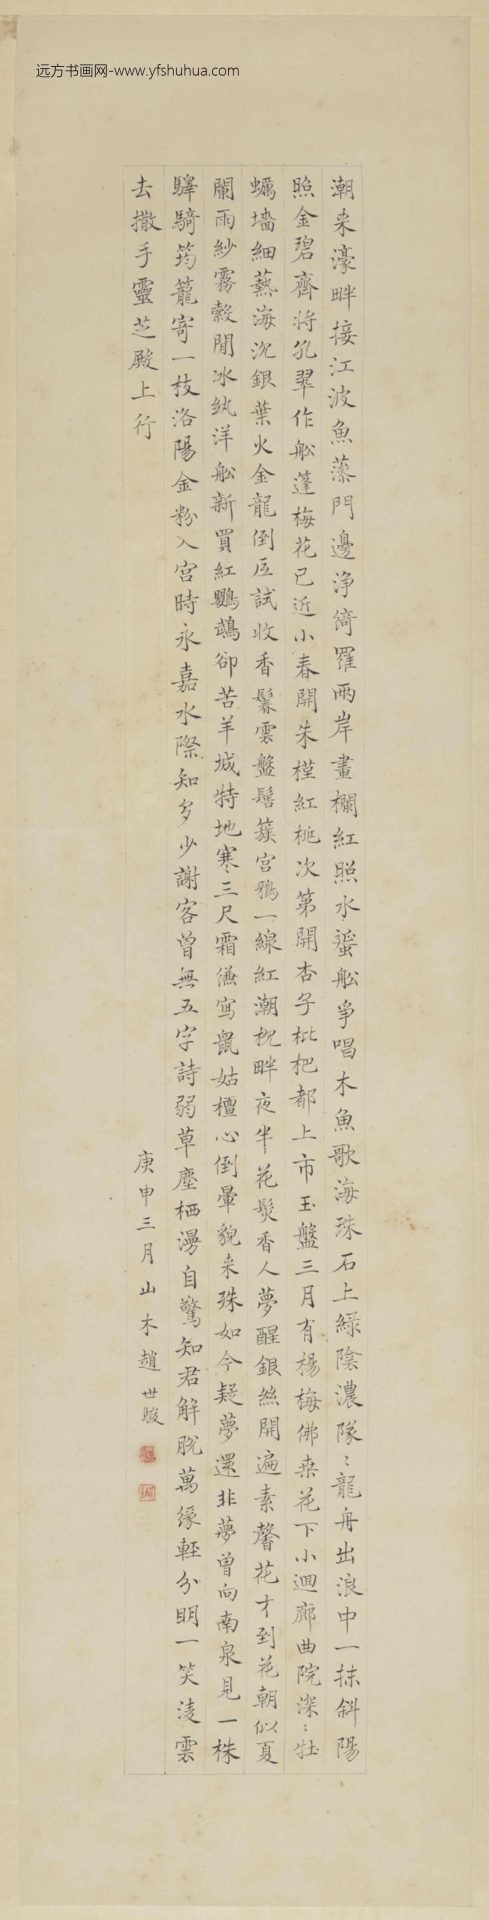 远方书画网-www.yfshuhua.com
潮来濠畔接江波魚藻門邊浄綺羅兩岸畫欄紅照水蜑船争唱木魚歌海珠石上緑陰濃隊〻龍舟出浪中一抹斜陽
照金碧齊將孔翠作船蓬梅花已近小春開朱槿紅桃次第開杏子枇杷都上市玉盤三月有楊梅佛桑花下小迴廊曲院深〻牡
蠣墻細爇海沈銀葉火金龍倒匹試收香鬟雲盤髻簇宮鴉一線紅潮枕畔夜半花鬟香人夢醒銀絲開遍素馨花才到花朝似夏
闌雨紗霧縠間冰紈洋船新買紅鸚鵡卻苦羊城特地寒三尺霜縑寫鼠姑檀心倒暈貌来殊如今疑夢還非夢曾向南泉見一株
驛騎筠籠寄一枝洛陽金粉入宮時永嘉水際知多少謝客曾無五字詩弱草塵栖漫自驚知君解脫萬緣輕分明一笑淩雲
去撒手靈芝殿上行
庚申三月山木趙世駿